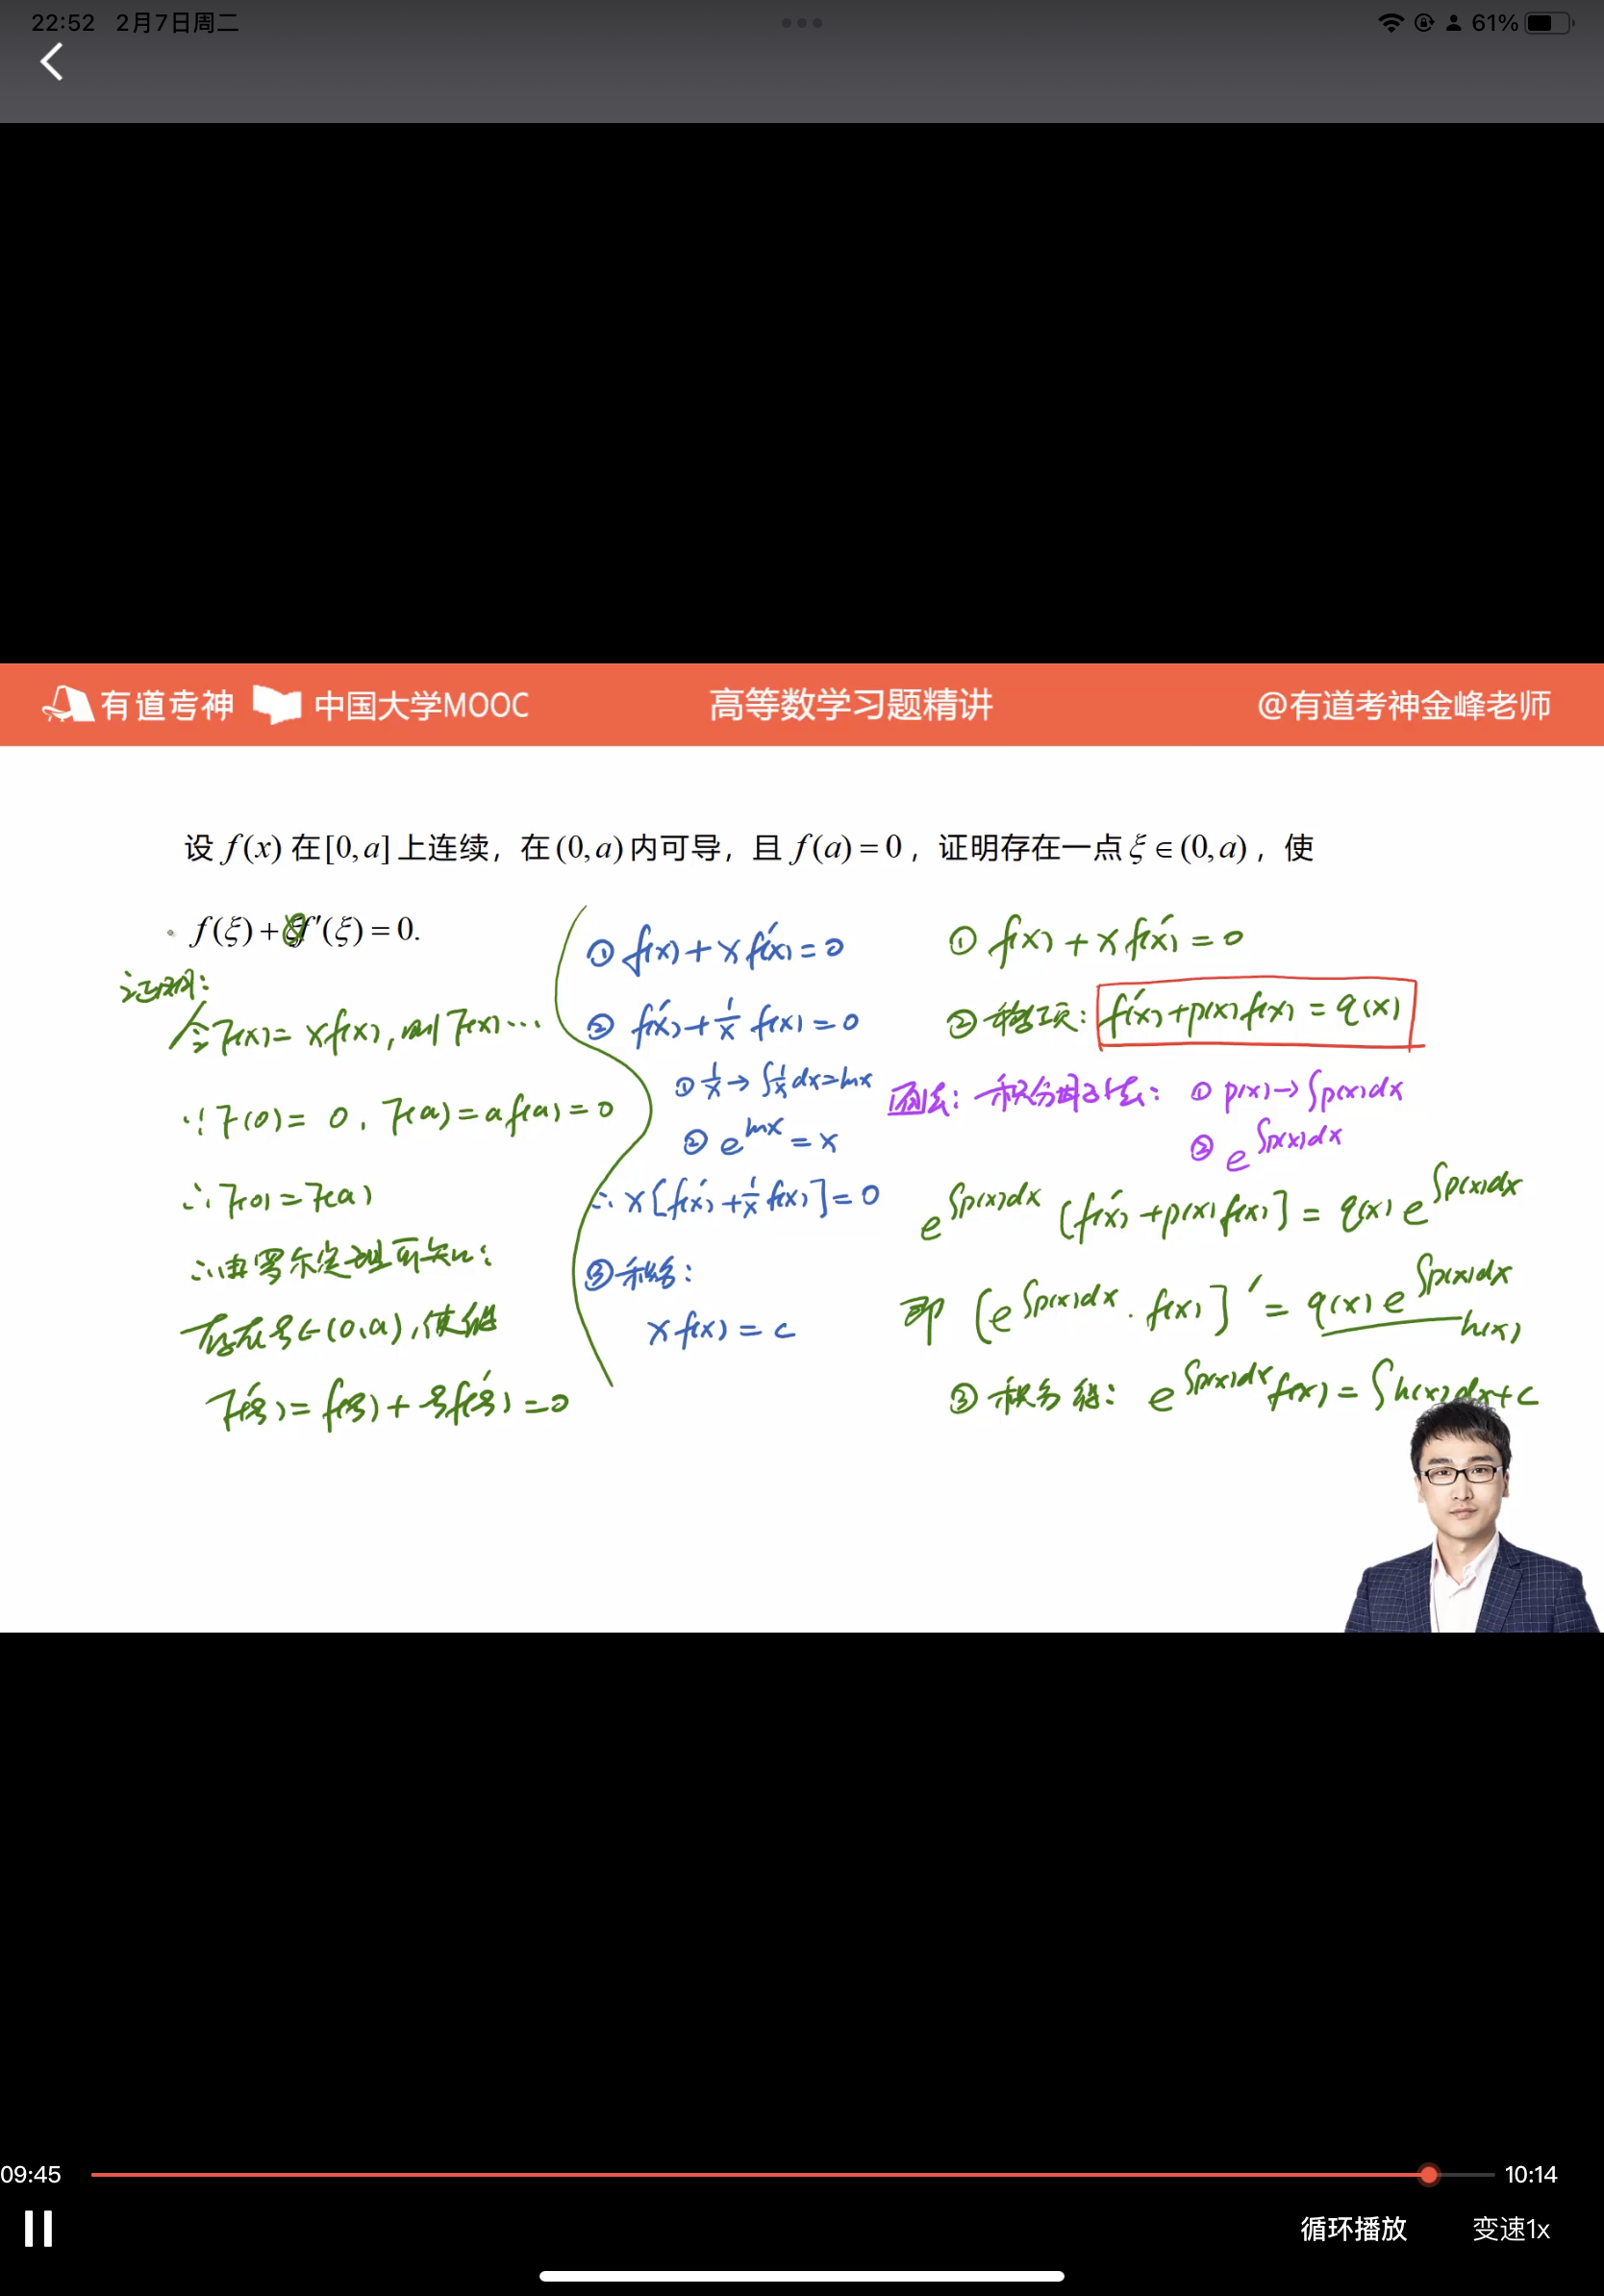 22:52 2月7日周二
61%
有道考神 中国大学MOOC 高等数学习题精讲 @有道考神金峰老师
设 f(x) 在 [0,a] 上连续，在 (0,a) 内可导，且 f(a)=0，证明存在一点 ξ∈(0,a)，使
f(ξ)+ξf′(ξ)=0.
证明:
令F(x)=xf(x),则F(x)…
∵F(0)=0, F(a)=af(a)=0
∴F(0)=F(a)
∴由罗尔定理可知:
存在ξ∈(0,a),使得
F′(ξ)=f(ξ)+ξf′(ξ)=0
① f(x)+xf′(x)=0
② f′(x)+1/x f(x)=0
① 1/x→∫1/x dx=lnx
② e^lnx=x
∴x[f′(x)+1/x f(x)]=0
③积分:
xf(x)=c
① f(x)+xf′(x)=0
②移项: f′(x)+p(x)f(x)=q(x)
积分因子法: ① p(x)→∫p(x)dx
② e^∫p(x)dx
e^∫p(x)dx [f′(x)+p(x)f(x)]=q(x)e^∫p(x)dx
即 [e^∫p(x)dx·f(x)]′=q(x)e^∫p(x)dx
h(x)
③积分得: e^∫p(x)dx f(x)=∫h(x)dx+c
09:45 10:14
循环播放 变速1x